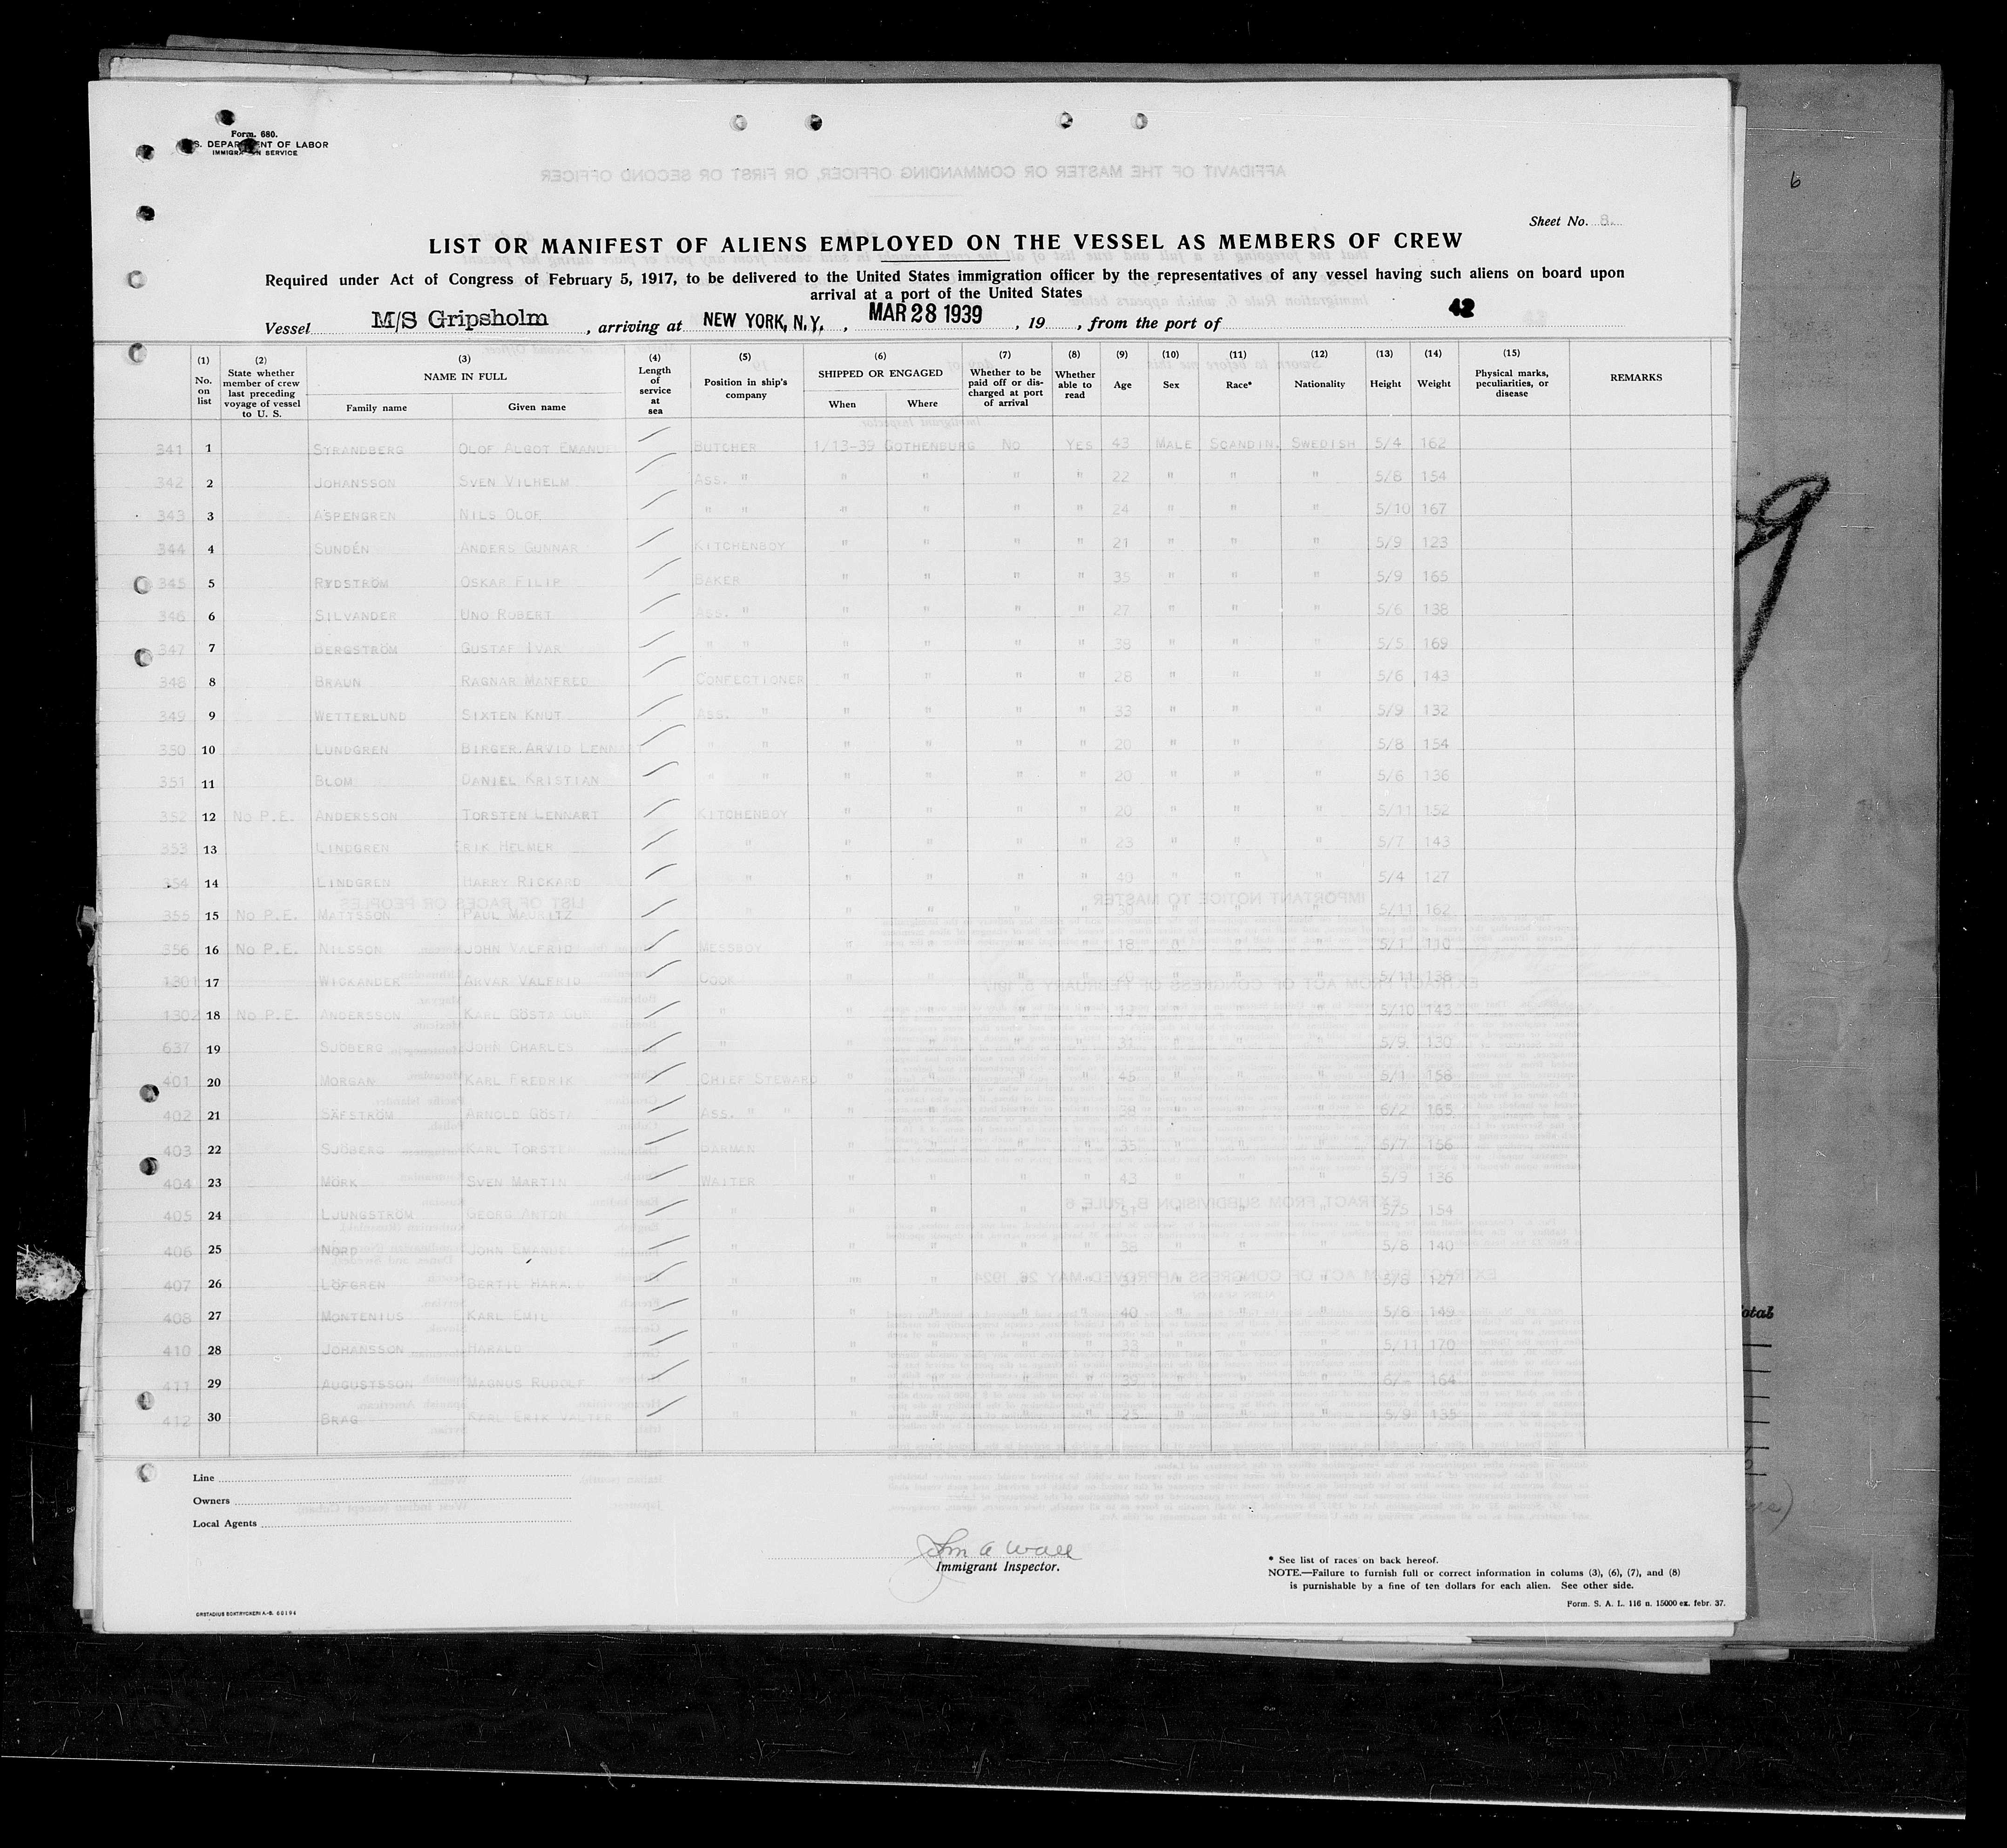 6
Form. 680.
S. DEPARTMENT OF LABOR
IMMIGRATION SERVICE
Sheet No. 8.
LIST OR MANIFEST OF ALIENS EMPLOYED ON THE VESSEL AS MEMBERS OF CREW
Required under Act of Congress of February 5, 1917, to be delivered to the United States immigration officer by the representatives of any vessel having such aliens on board upon
arrival at a port of the United States
42
Vessel M/S Gripsholm, arriving at NEW YORK, N.Y., MAR 28 1939, 19 , from the port of
(1) No. on list
(2) State whether member of crew last preceding voyage of vessel to U. S.
(3) NAME IN FULL Family name Given name
(4) Length of service at sea
(5) Position in ship's company
(6) SHIPPED OR ENGAGED When Where
(7) Whether to be paid off or discharged at port of arrival
(8) Whether able to read
(9) Age
(10) Sex
(11) Race*
(12) Nationality
(13) Height
(14) Weight
(15) Physical marks, peculiarities, or disease
REMARKS
341 1 STRANDBERG OLOF ALGOT EMANUE BUTCHER 1/13-39 GOTHENBURG NO YES 43 MALE SCANDIN. SWEDISH 5/4 162
342 2 JOHANSSON SVEN VILHELM ASS. " " " " " 22 " " " 5/8 154
343 3 ASPENGREN NILS OLOF " " " " " " 24 " " " 5/10 167
344 4 SUNDÉN ANDERS GUNNAR KITCHENBOY " " " " 21 " " " 5/9 123
345 5 RYDSTRÖM OSKAR FILIP BAKER " " " " 35 " " " 5/9 165
346 6 SILVANDER UNO ROBERT ASS. " " " " " 27 " " " 5/6 138
347 7 BERGSTRÖM GUSTAF IVAR " " " " " " 38 " " " 5/5 169
348 8 BRAUN RAGNAR MANFRED CONFECTIONER " " " " 28 " " " 5/6 143
349 9 WETTERLUND SIXTEN KNUT ASS. " " " " " 33 " " " 5/9 132
350 10 LUNDGREN BIRGER ARVID LENNART " " " " " " 20 " " " 5/8 154
351 11 BLOM DANIEL KRISTIAN " " " " " " 20 " " " 5/6 136
352 12 NO P.E. ANDERSSON TORSTEN LENNART KITCHENBOY " " " " 20 " " " 5/11 152
353 13 LINDGREN ERIK HELMER " " " " " 23 " " " 5/7 143
354 14 LINDGREN HARRY RICKARD " " " " " 40 " " " 5/4 127
355 15 NO P.E. MATTSSON PAUL MAURITZ " " " " " " " " 5/11 162
356 16 NO P.E. NILSSON JOHN VALFRID MESSBOY " " " " 18 " " " 5/1 110
1301 17 WICKANDER ARVAR VALFRID COOK " " " " " " " 5/11 138
1302 18 NO P.E. ANDERSSON KARL GÖSTA " " " " " " " " 5/10 143
637 19 SJÖBERG JOHN CHARLES " " " " " 31 " " " 5/9 130
401 20 MORGAN KARL FREDRIK CHIEF STEWARD " " " " 45 " " " 6/1 158
402 21 SÄFSTRÖM ARNOLD GÖSTA ASS. " " " " " " 38 " " " 6/2 165
403 22 SJÖBERG KARL TORSTEN BARMAN " " " " 35 " " " 5/7 156
404 23 MÖRK SVEN MARTIN WAITER " " " " 43 " " " 5/9 136
405 24 LJUNGSTRÖM GEORG ANTON " " " " " 51 " " " 5/5 154
406 25 NORD JOHN EMANUEL " " " " " 38 " " " 5/8 140
407 26 LÖFGREN BERTIL HARALD " " " " " 31 " " " 5/8 127
408 27 MONTENIUS KARL EMIL " " " " " 40 " " " 5/8 149
410 28 JOHANSSON HARALD " " " " " 33 " " " 5/11 170
411 29 AUGUSTSSON MAGNUS RUDOLF " " " " " 39 " " " 164
412 30 BRAG KARL ERIK VALTER " " " " " 25 " " " 5/9 135
Line
Owners
Local Agents
Jhn A Wall
Immigrant Inspector.
* See list of races on back hereof.
NOTE.—Failure to furnish full or correct information in colums (3), (6), (7), and (8)
is punishable by a fine of ten dollars for each alien. See other side.
Form. S. A. L. 116 n. 15000 ex. febr. 37.
ORSTADIUS BOKTRYCKERI A.-B. 60194